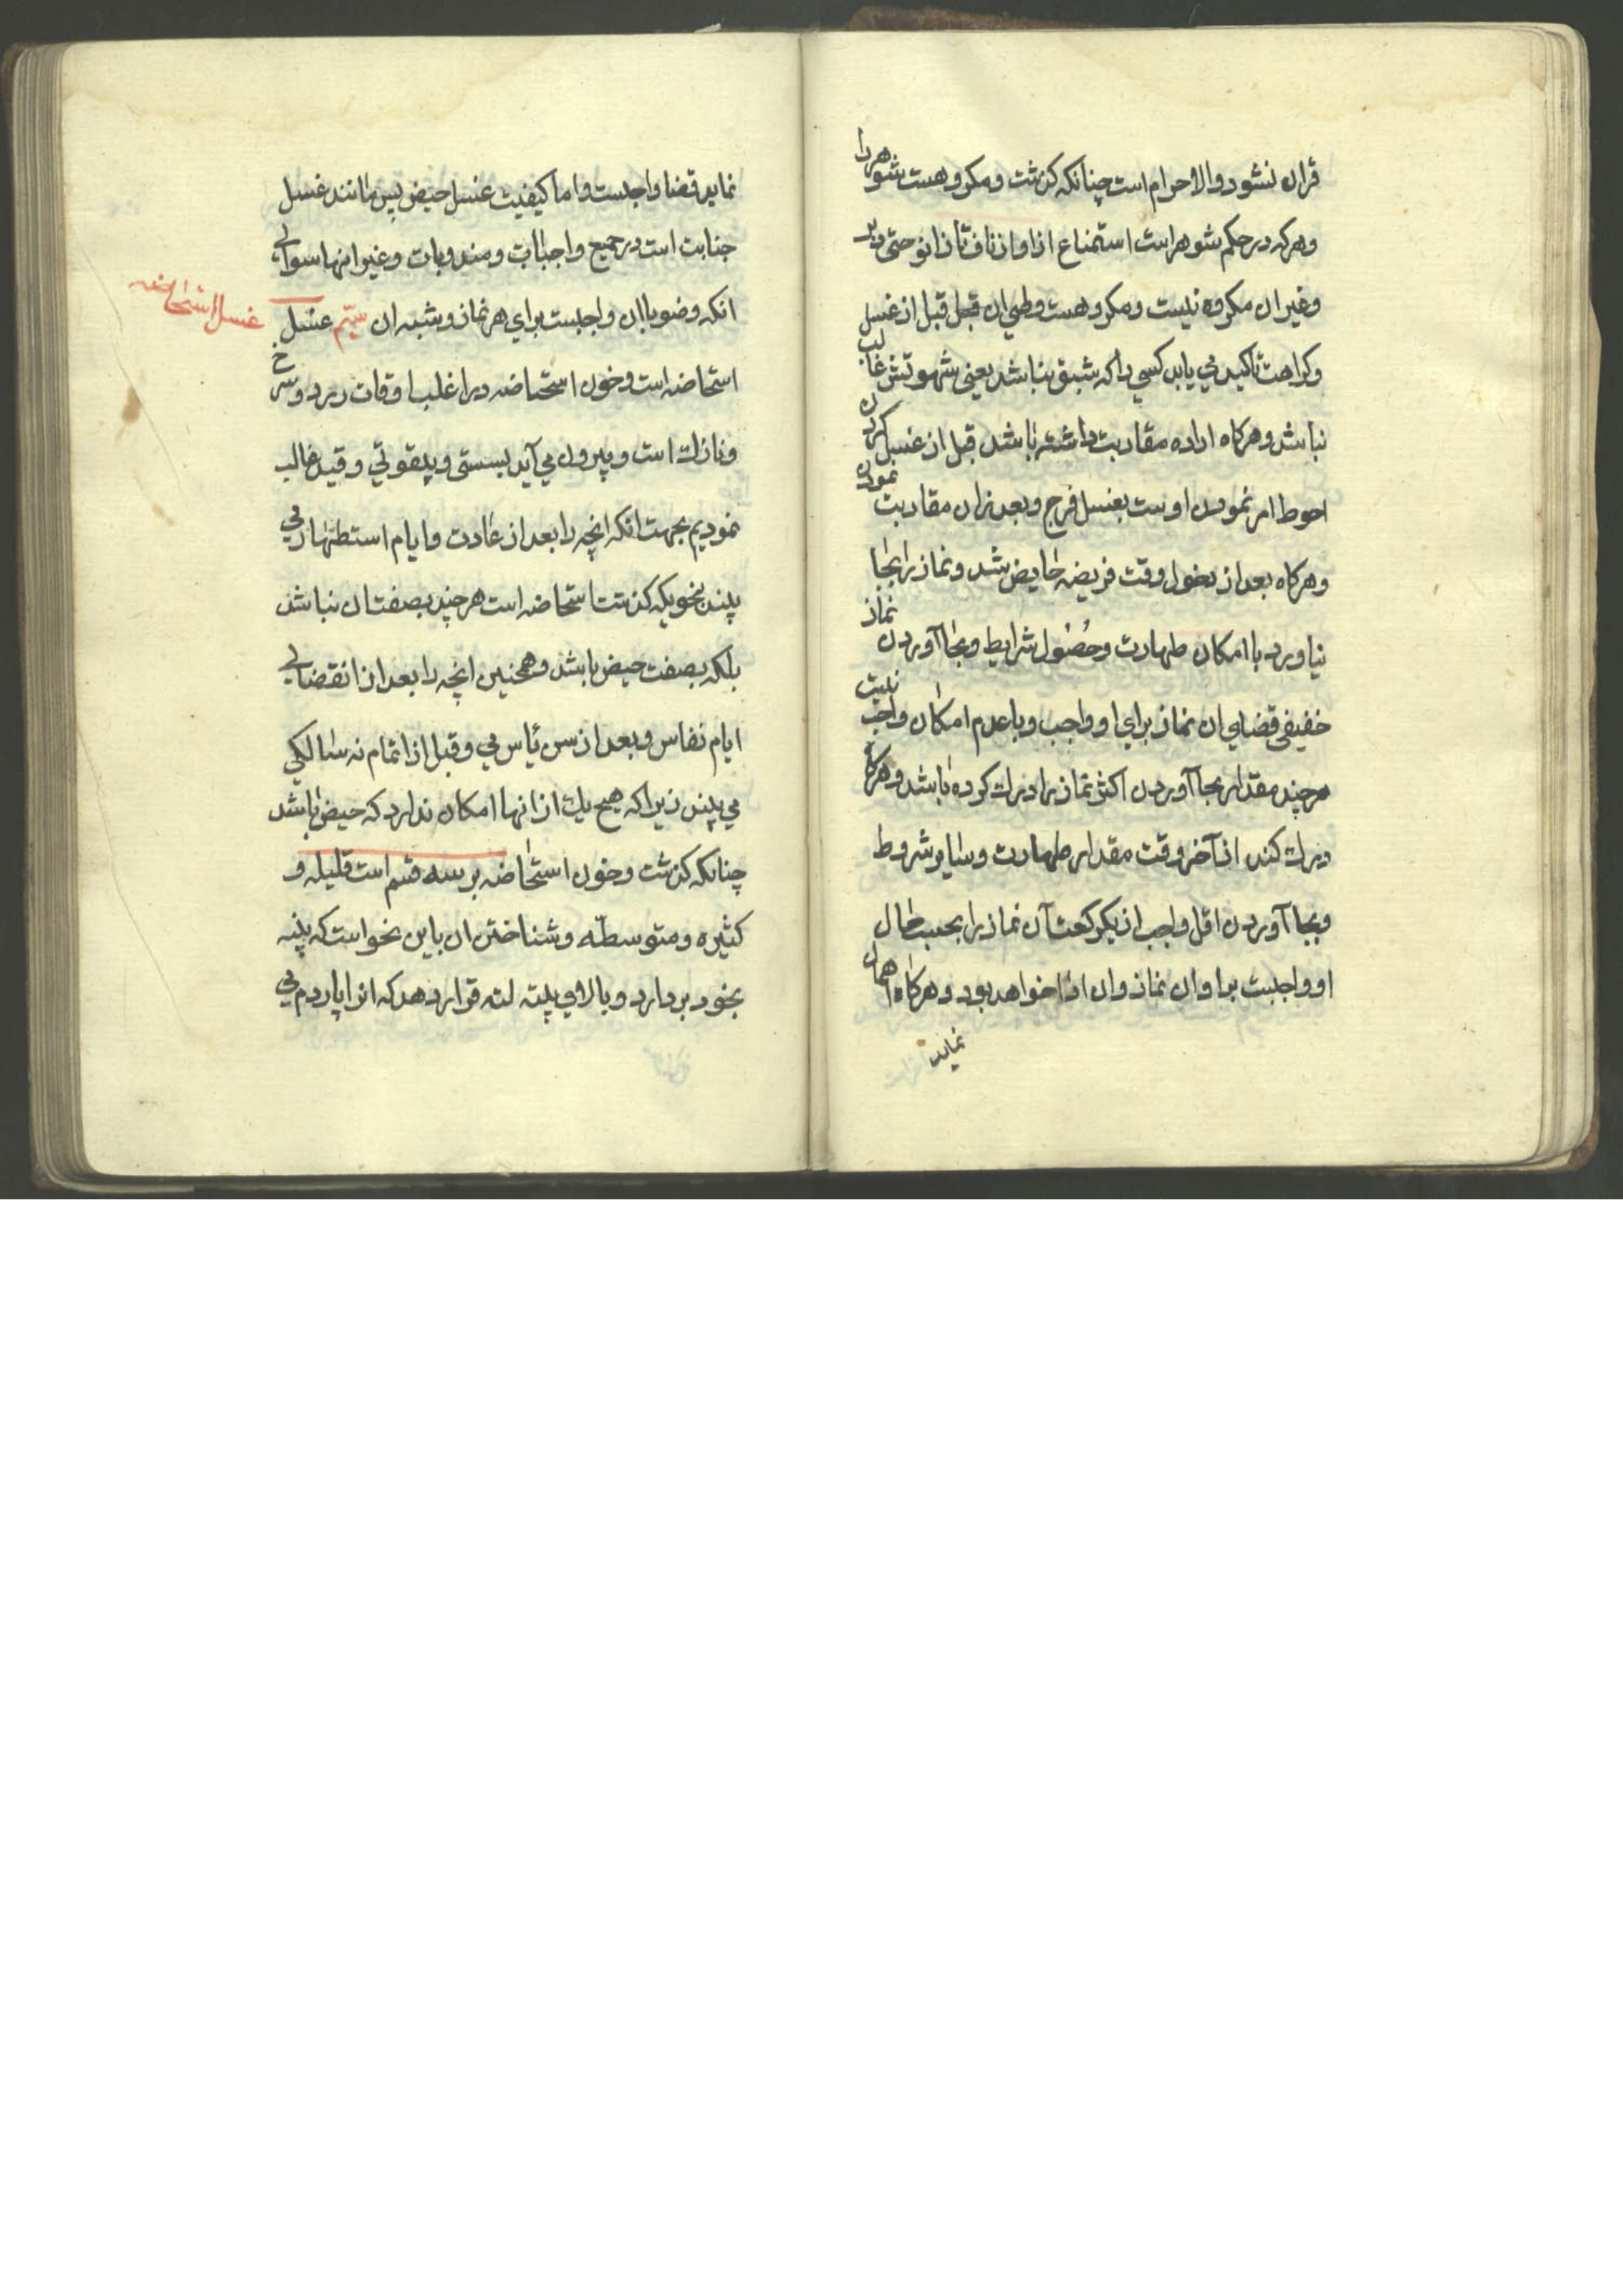 قران نشود والا حرام است چنانکه کذشت ومکروهست شوهر را
وهرکه در حکم شوهر است استمتاع از او از ناف تا زانو حتی دبر
وغیر ان مکروه نیست ومکروهست وطی ان قبل از غسل
وکراهت تاکید می یابد کسی را که شبق نباشد یعنی شهوتش غالب
نباشد وهرکاه اراده مقاربت داشته باشد قبل از غسل کردن
احوط امر نمودن اوست بغسل فرج وبعد از ان مقاربت نمودن
وهرکاه بعد از دخول وقت فریضه حایض شد ونماز را بجا
نیاورد با امکان طهارت وحصول شرایط وبجا آوردن نماز
خفیفی قضای ان نماز برای او واجب وبا عدم امکان واجب نیست
هرچند مقدار بجا آوردن اکثر نماز را درك کرده باشد وهرکاه
درك کند از آخر وقت مقدار طهارت وسایر شروط
وبجا آوردن اقل واجب از یکرکعت آن نماز را بحسب حال
او واجبست بر او ان نماز وان ادا خواهد بود وهرکاه اهمال
نماید
نماید قضا واجبست واما کیفیت غسل حیض پس مانند غسل
جنابت است در جمیع واجبات ومندوبات وغیر انها سوای
انکه وضو با ان واجبست برای هر نماز وشبه ان سیّم غسل
غسل استحاضه
استحاضه است وخون استحاضه در اغلب اوقات زرد وسرخ
ونازك است وبیرون می آید بسستی وبیقوتی وقید غالب
نمودیم بجهت انکه انچه را بعد از عادت وایام استظهار می
بیند بنحویکه کذشت استحاضه است هرچند بصفت ان نباشد
بلکه بصفت حیض باشد وهمچنین انچه را بعد از انقضای
ایام نفاس وبعد از سن یأس می وقبل از اتمام نه سالکی
می بیند زیرا که هیچ یك از انها امکان ندارد که حیض باشد
چنانکه کذشت وخون استحاضه بر سه قسم است قلیله و
کثیره ومتوسطه وشناختن ان باین نحو است که پنبه
بخود بردارد وبالای پنبه لته قرار دهد که انرا پاردم می